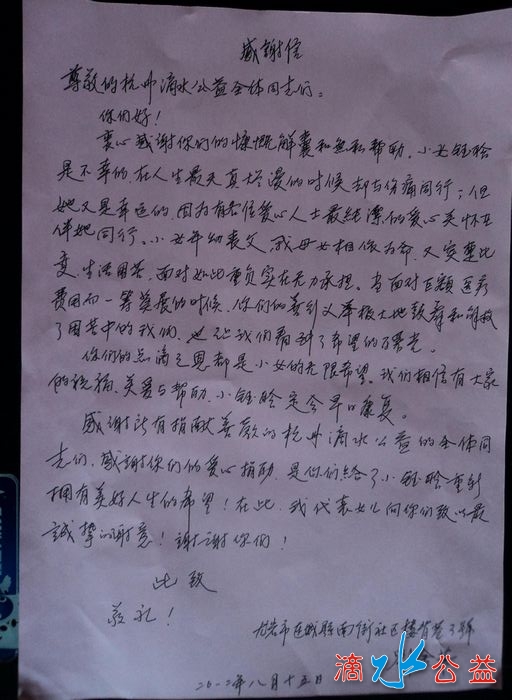 感謝信
尊敬的杭州滴水公益全体同志们：
你们好！
衷心感謝你们的慷慨解囊和無私帮助。小女钰晗
是不幸的，在人生最天真烂漫的时候却与伤痛同行；但
她又是幸运的，因为有若位爱心人士最纯潔的爱心关怀在
伴她同行。小女年幼丧父，我母女相依为命，又突遭此
变，生活困苦，面对如此重负实在无力承担。当面对巨額医疗
费用而一筹莫展的时候，你们的善引义举极大地鼓舞和解救
了困苦中的我们，也让我们看到了希望的曙光。
你们的点滴之恩都是小女的无限希望。我们相信有大家
的祝福、关爱与帮助，小钰晗定会早日康复。
感谢所有捐献善款的杭州滴水公益的全体同
志们，感謝你们的爱心捐助，是你们給了小钰晗重新
拥有美好人生的希望！在此，我代表女儿向你们致以最
誠挚的谢意！謝谢你们！
此致
敬礼！
市区城縣南街社区楼背巷3號
二0一二年八月十五日
滴水公益